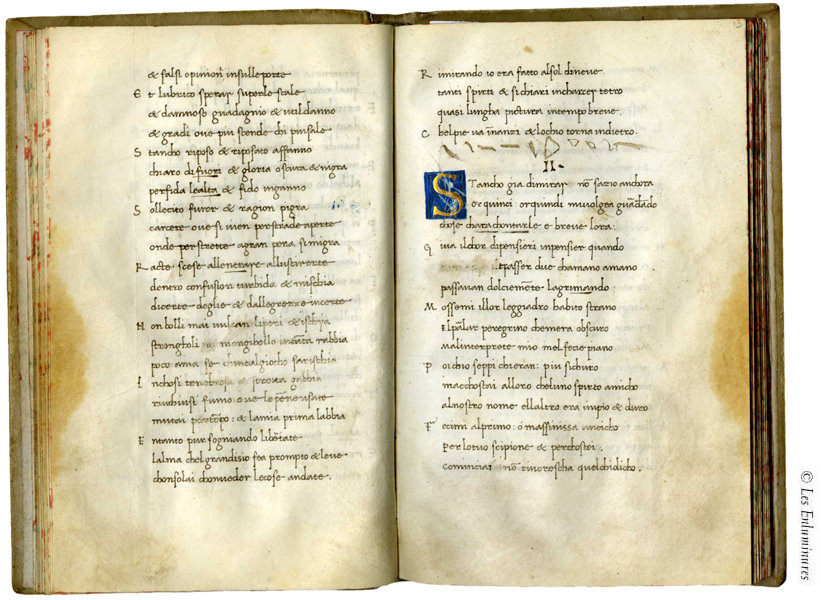 & falsi opinioni insulle porte
E t lubrico sperar su perle scale
& dannoso guadagnio & util danno
& gradi ove piu scende chi piu sale
S tancho riposo & riposato affanno
chiaro di fuori & gloria oscura & nigra
perfida lealta & fido inganno
S ollecito furor & ragion pigra
carcere ove si vien per strade aperte
onde per strette a gran pena si migra
R atte scese allentrare allusir erte
dentro confusion turbida & mischia
di certe doglie & dallegrezze incerte
N on bolli mai vulcan lipari & ischia
strongboli mongibello in tanta rabbia
poco ama se chi in tal giocho sarischia
I nchosi tenebrosa & stretta gabbia
rinchiusi fumo ove le penne usate
mutai per tempo & la mia prima labbia
E ntanto pur sogniando libertate
lalma chel gran disio fea prompta & leve
chonsolai chon veder le cose andate.
13
R imirando io era fatto al sol di neve
tanti spirti & si chiari in charcer tetro
quasi lungha pictura in tempo breve.
C hel pie va inanzi & lochio torna indietro.
II.
S Tancho gia di mirar non sazio anchora
or quinci or quindi mi volgea guardando
chose cha rachontarle e breve lora:
G iva il chor di pensieri in pensier quando
passer due cha mano a mano
passavan dolciemente lagrimando
M ossemi il lor leggiadro habito strano
El parlar peregrino che mera obscuro
ma linterprete mio mel fecie piano
P oi chio seppi chi eran piu sichuro
macchostai alloro che luno spirto amicho
al nostro nome ellaltro era impio & duro
F ecimi al primo: o massinissa anticho
per lo tuo scipione & per chostei
cominciai non ti increscha quel chi dicho.
© Les Enluminures